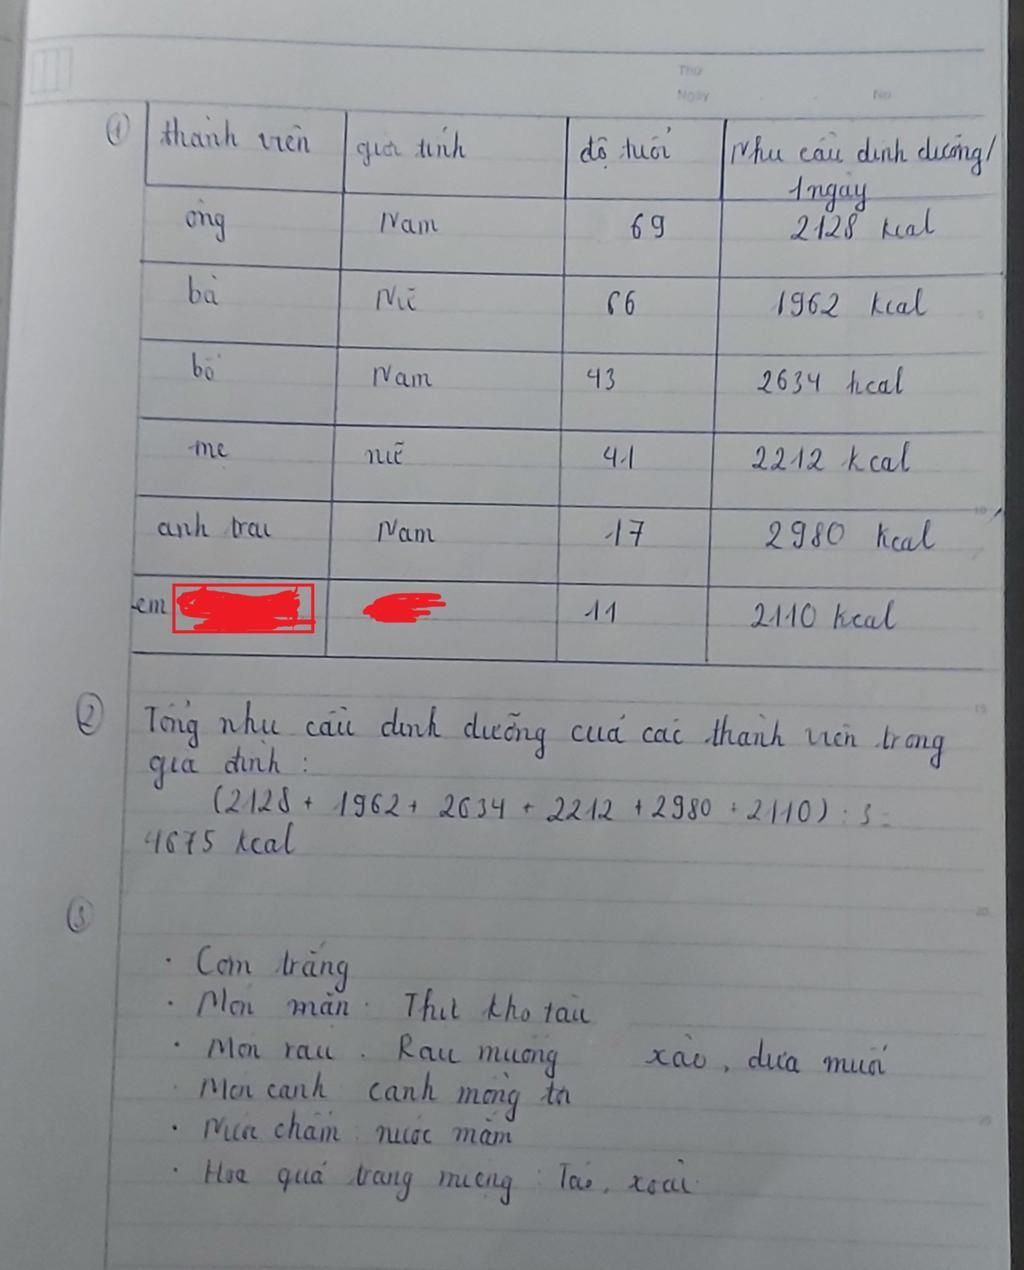 Thứ
Ngày No
① thành viên giới tính độ tuổi Nhu cầu dinh dưỡng/
1 ngày
ông Nam 69 2128 kcal
bà Nữ 66 1962 kcal
bố Nam 43 2634 kcal
mẹ nữ 41 2212 kcal
anh trai Nam 17 2980 kcal
em 11 2110 kcal
② Tổng nhu cầu dinh dưỡng của các thành viên trong
gia đình :
(2128 + 1962 + 2634 + 2212 + 2980 + 2110) : 3 =
4675 kcal
③
· Cơm trắng
· Món mặn : Thịt kho tàu
· Món rau : Rau muống xào, dưa muối
· Món canh canh mồng tơi
· Nước chấm : nước mắm
· Hoa quả tráng miệng : Táo, xoài